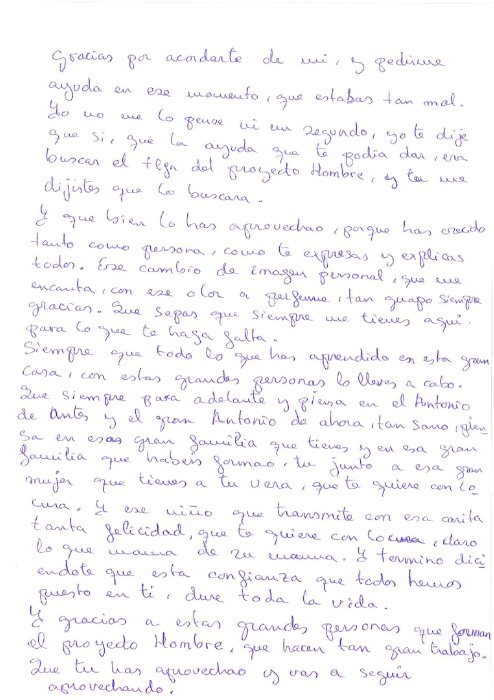 Gracias por acordarte de mi, y pedirme
ayuda en ese momento, que estabas tan mal.
Yo no me lo pense ni un segundo, yo te dije
que si, que la ayuda que te podia dar, era
buscar el tlfn del proyecto Hombre, y tu me
dijistes que lo buscara.
Y que bien lo has aprovechao, porque has crecido
tanto como persona, como te expresas y explicas
todos. Ese cambio de imagen personal, que me
encanta, con ese olor a perfume, tan guapo siempre
gracias. Que sepas que siempre me tienes aqui.
para lo que te haga falta.
Siempre que todo lo que has aprendido en esta gran
casa, con estas grandes personas lo lleves a cabo.
Que siempre para adelante y piensa en el Antonio
de Antes y el gran Antonio de ahora, tan sano, pien
sa en esas gran familia que tienes y en esa gran
familia que habeis formao, tu junto a esa gran
mujer que tienes a tu vera, que te quiere con lo
cura. Y ese niño que transmite con esa carita
tanta felicidad, que te quiere con locura, claro
lo que mama de su mama. Y termino dici
endote que esta confianza que todos hemos
puesto en ti, dure toda la vida.
Y gracias a estas grandes personas que forman
el proyecto Hombre, que hacen tan gran trabajo.
Que tu has aprovechao y vas a seguir
aprovechando.